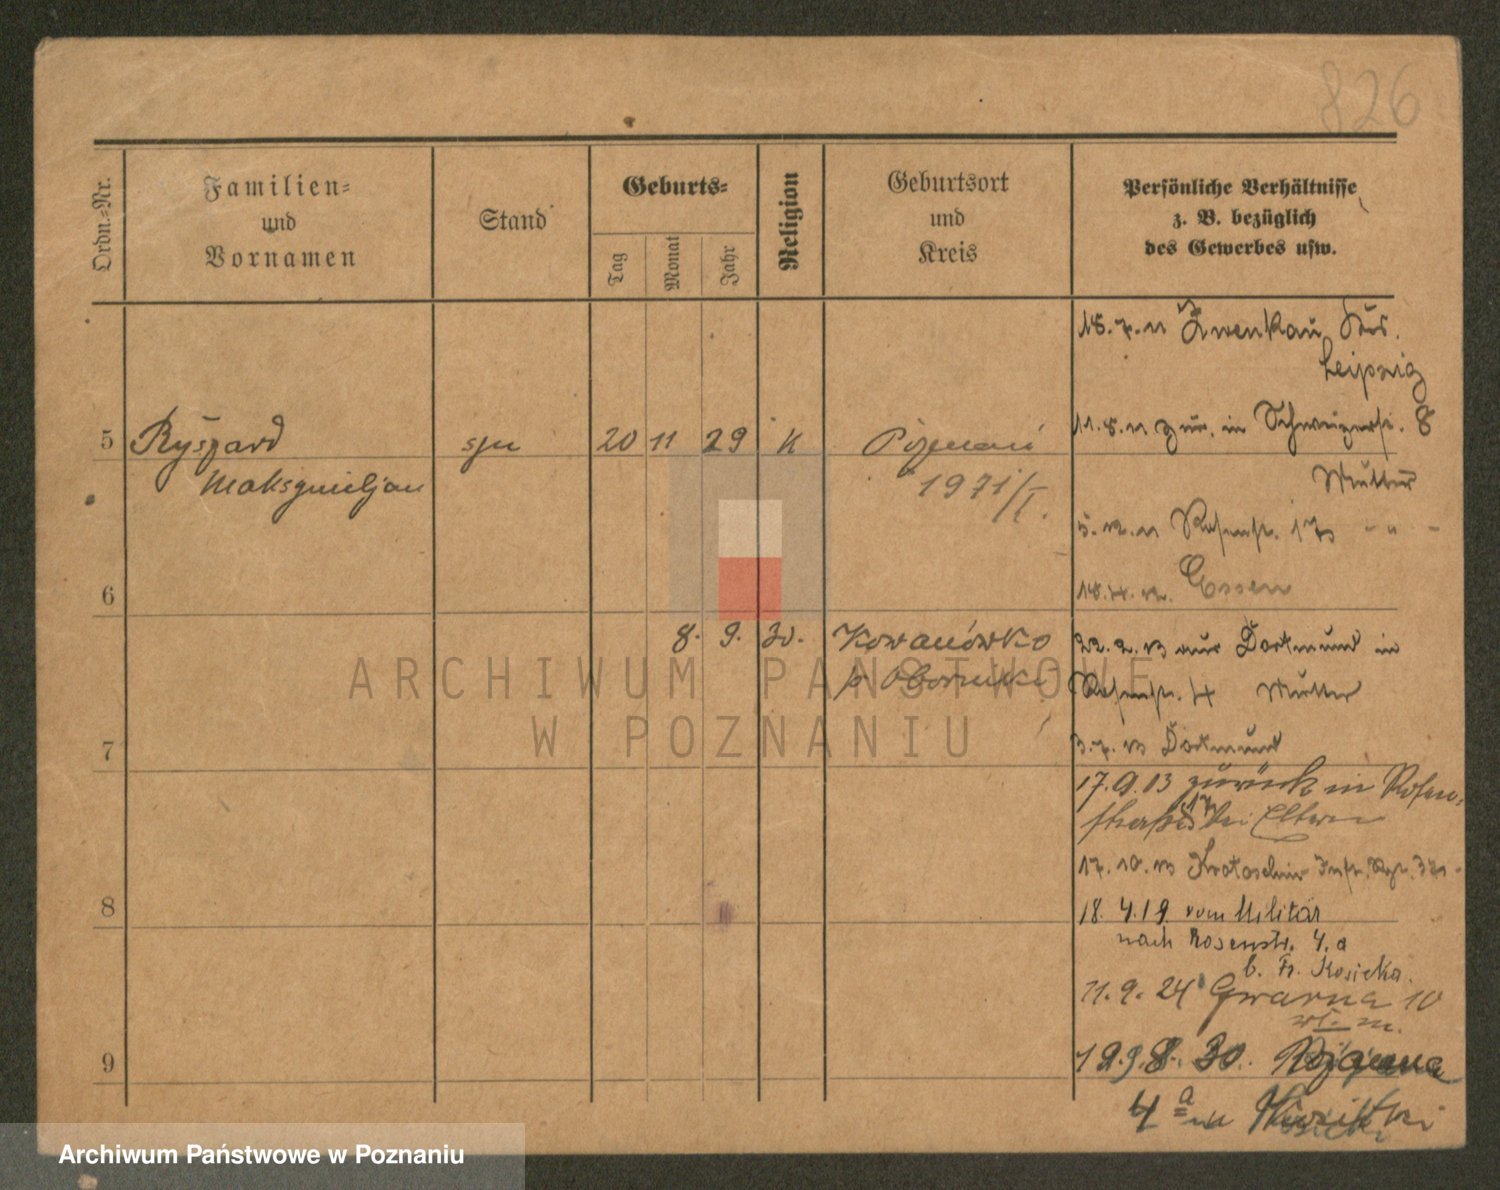 826
Ordn.=Nr.
Familien=
und
Vornamen
Stand
Geburts=
Tag
Monat
Jahr
Religion
Geburtsort
und
Kreis
Persönliche Verhältnisse
z. B. bezüglich
des Gewerbes usw.
18.7.11 Zwenkau
Leipzig
5 Ryszard syn 20 11 29 K Poznań
Maksymiljan
1971/I.
11.8.11 zur. in 8
Mutter
5.12.11 Rosenstr. 17 - " -
18.4.12. Essen
6
8. 9. 30. Kowanówko
p. Oborniki
22.2.13 aus Dortmund in
Rosenstr. 4 Mutter
7
3.7.13 Dortmund
17.9.13 zurück in Rosen-
straße 17 bei Eltern
17.10.13 Krotoschin Inf. Rgt.
8
18. 4.19. vom Militär
nach Rosenstr. 4.a
b. Fr. Kosicka.
11.9.24 Gwarna 10
wł. m.
9
30. Różana
4 a
ARCHIWUM PAŃSTWOWE
W POZNANIU
Archiwum Państwowe w Poznaniu